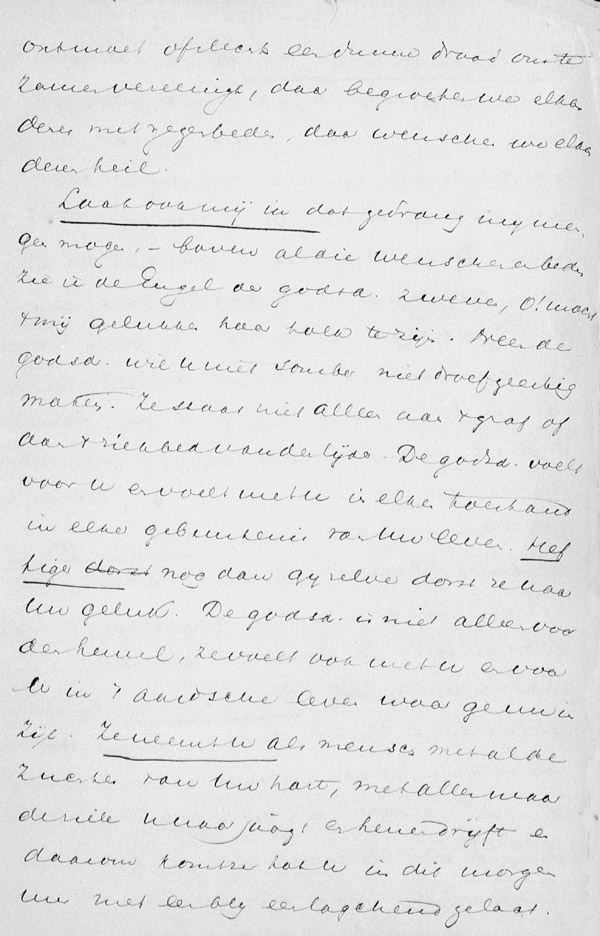 ontmoet of slechts een dunne draad ons te
zamen vereenigt, daar begroeten we elkan
deren met zegenbeden, daar wenschen we elkan
deren heil.
Laat ook mij in dat gedrang my men
gen mogen, – boven al die wenschen en beden
zie ik de Engel der godsd. zweven, O! mocht
't mij gelukken haar tolk te zijn. Neen de
godsd. wil u niet somber niet droefgeestig
maken. Ze staat niet alleen aan 't graf of
aan 't ziekbed van de lijder. De godsd. voelt
voor u en voelt met u in elken toestand
in elke gebeurtenis van Uw leven. Hef
tiger dorst nog dan gy zelve dorst ze naar
Uw geluk. De godsd. is niet alleen voor
den hemel, ze voelt ook met u en voor
U in 't aardsche leven waar ge nu in
zijt. Ze neemt u als mensch met al de
zuchten van Uw hart, met alles waar
de ziele u naar jaagt en henen drijft en
daarom komt ze tot u in dit morgen
uur met een bly een lagchend gelaat.